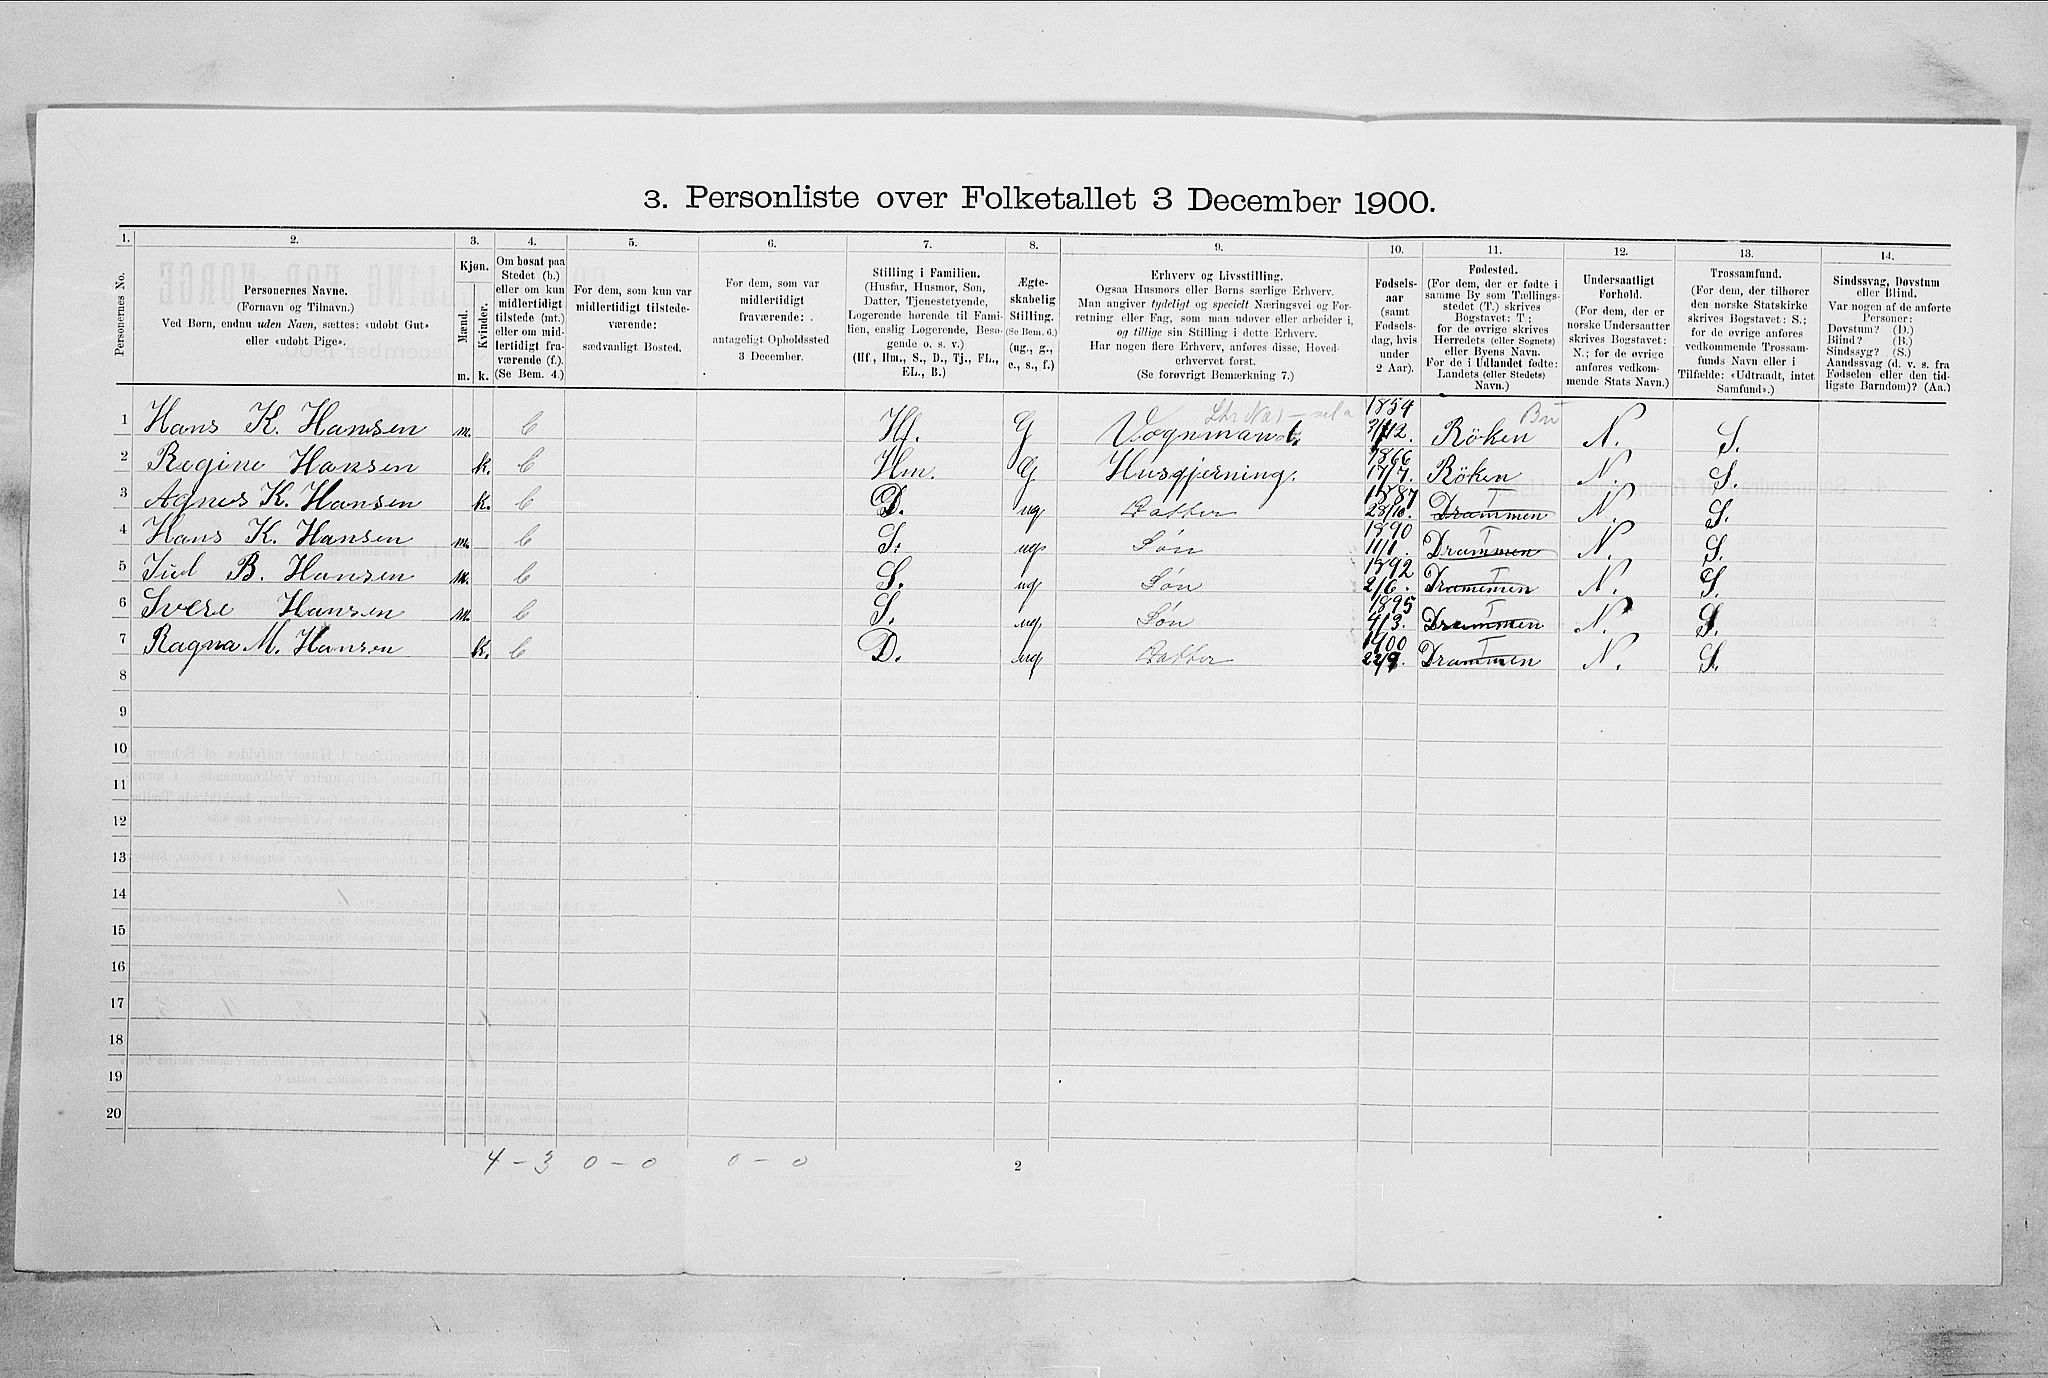 3. Personliste over Folketallet 3 December 1900.
1. 2. 3. 4. 5. 6. 7. 8. 9. 10. 11. 12. 13. 14.
Personernes No.
Personernes Navne.
(Fornavn og Tilnavn.)
Ved Børn, endnu uden Navn, sættes: «udobt Gut»
eller «udobt Pige».
Kjøn.
Mænd. Kvinder.
m. k.
Om bosat paa
Stedet (b.)
eller om kun
midlertidigt
tilstede (mt.)
eller om mid-
lertidigt fra-
værende (f.).
(Se Bem. 4.)
For dem, som kun var
midlertidigt tilstede-
værende:
sædvanligt Bosted.
For dem, som var
midlertidigt
fraværende:
antageligt Opholdssted
3 December.
Stilling i Familien.
(Husfar, Husmor, Søn,
Datter, Tjenestetyende,
Logerende hørende til Fami-
lien, enslig Logerende, Besø-
gende o. s. v.)
(Hf., Hm., S., D., Tj., FL.,
EL., B.)
Ægte-
skabelig
Stilling.
(Se Bem. 6.)
(ug., g.,
e., s., f.)
Erhverv og Livsstilling.
Ogsaa Husmors eller Børns særlige Erhverv.
Man angiver tydeligt og specielt Næringsvei og For-
retning eller Fag, som man udover eller arbeider i,
og tillige sin Stilling i dette Erhverv.
Har nogen flere Erhverv, anføres disse, Hoved-
erhvervet først.
(Se forøvrigt Bemærkning 7.)
Fødsels-
aar
(samt
Fødsels-
dag, hvis
under
2 Aar).
Fødested.
(For dem, der er fødte i
samme By som Tællings-
stedet (T.) skrives
Bogstavet: T.;
for de øvrige skrives
Herredets (eller Sognets)
eller Byens Navn.
For de i Udlandet fødte:
Landets (eller Stedets)
Navn.)
Undersaatligt
Forhold.
(For dem, der er
norske Undersaatter
skrives Bogstavet:
N.; for de øvrige
anføres vedkom-
mende Stats Navn.)
Trossamfund.
(For dem, der tilhører
den norske Statskirke
skrives Bogstavet: S.;
for de øvrige anføres
vedkommende Trossam-
funds Navn eller i
Tilfælde: «Udtraadt, intet
Samfund».)
Sindssvag, Døvstum
eller Blind.
Var nogen af de anførte
Personer:
Døvstum? (D.)
Blind? (B.)
Sindssyg? (S.)
Aandssvag (d. v. s. fra
Fødselen eller den tid-
ligste Barndom)? (Aa.)
1 Hans K. Hansen m. b Hf. G Vognmand. 1854 Röken N. S.
2 Regine Hansen k. b Hm. G Husgjerning. 1866 17/7. Röken N. S.
3 Agnes K. Hansen k. b D. ug Datter 1887 28/10. Drammen T N. S.
4 Hans K. Hansen m. b S. ug. Søn 1890 11/1. Drammen T N. S.
5 Juel B. Hansen m. b S. ug Søn 1892 2/6. Drammen T N. S.
6 Svere Hansen m. b S. ug. Søn 1895 4/3. Drammen T N. S.
7 Ragna M. Hansen k. b D. ug Datter 1900 22/9. Drammen T N. S.
8
9
10
11
12
13
14
15
16
17
18
19
20
4 – 3 0 – 0 0 – 0 2